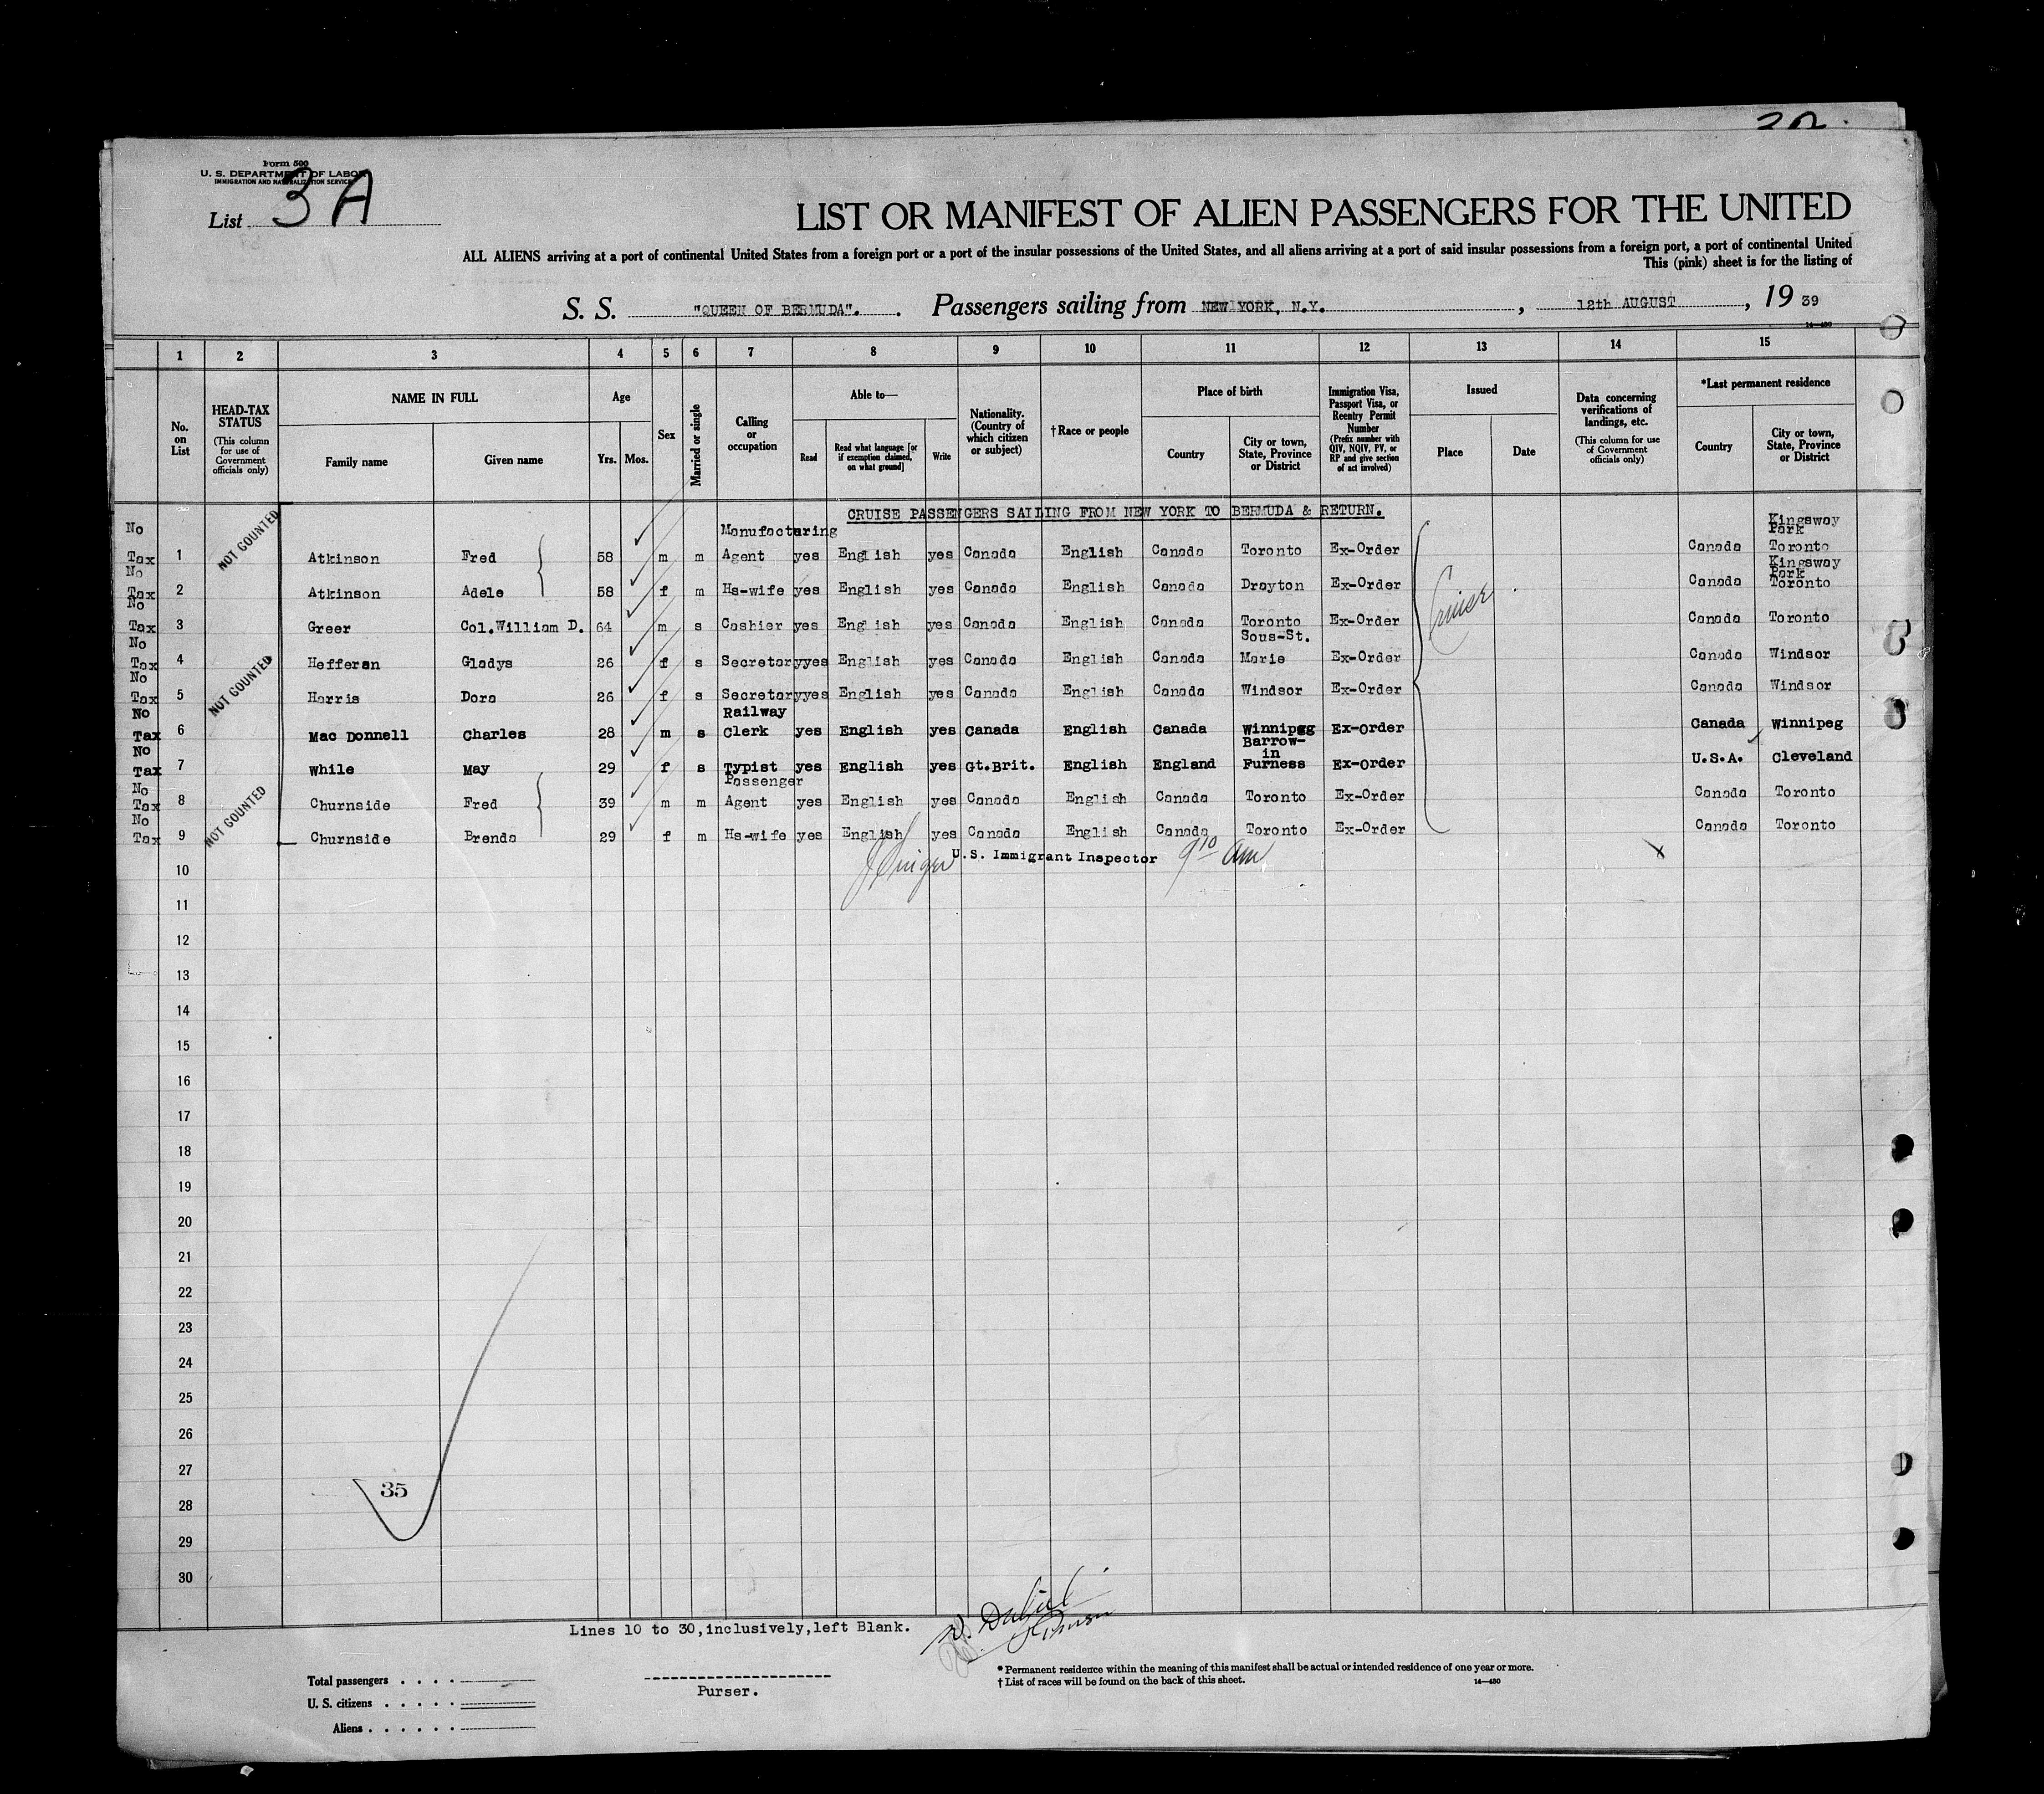 Form 500
U. S. DEPARTMENT OF LABOR
IMMIGRATION AND NATURALIZATION SERVICE
List 3A
LIST OR MANIFEST OF ALIEN PASSENGERS FOR THE UNITED
ALL ALIENS arriving at a port of continental United States from a foreign port or a port of the insular possessions of the United States, and all aliens arriving at a port of said insular possessions from a foreign port, a port of continental United
This (pink) sheet is for the listing of
S. S. "QUEEN OF BERMUDA". Passengers sailing from NEW YORK, N.Y. , 12th AUGUST , 19 39
14—430
1 2 3 4 5 6 7 8 9 10 11 12 13 14 15
No. on List
HEAD-TAX STATUS (This column for use of Government officials only)
NAME IN FULL
Family name
Given name
Age
Yrs. Mos.
Sex
Married or single
Calling or occupation
Able to—
Read
Read what language [or if exemption claimed, on what ground]
Write
Nationality. (Country of which citizen or subject)
†Race or people
Place of birth
Country
City or town, State, Province or District
Immigration Visa, Passport Visa, or Reentry Permit Number (Prefix number with QIV, NQIV, PV, or RP and give section of act involved)
Issued
Place
Date
Data concerning verifications of landings, etc. (This column for use of Government officials only)
*Last permanent residence
Country
City or town, State, Province or District
CRUISE PASSENGERS SAILING FROM NEW YORK TO BERMUDA & RETURN.
NOT COUNTED
No Tax 1 Atkinson Fred 58 m m Manufacturing Agent yes English yes Canada English Canada Toronto Ex-Order Canada Kingsway Park Toronto
No Tax 2 Atkinson Adele 58 f m Hs-wife yes English yes Canada English Canada Drayton Ex-Order Canada Kingsway Park Toronto
Cruise
No Tax 3 Greer Col.William D. 64 m s Cashier yes English yes Canada English Canada Toronto Ex-Order Canada Toronto
NOT COUNTED
No Tax 4 Hefferan Gladys 26 f s Secretary yes English yes Canada English Canada Sous-St. Marie Ex-Order Canada Windsor
No Tax 5 Harris Dora 26 f s Secretary yes English yes Canada English Canada Windsor Ex-Order Canada Windsor
No Tax 6 Mac Donnell Charles 28 m s Railway Clerk yes English yes Canada English Canada Winnipeg Ex-Order Canada Winnipeg
No Tax 7 While May 29 f s Typist yes English yes Gt.Brit. English England Barrow-in Furness Ex-Order U.S.A. Cleveland
NOT COUNTED
No Tax 8 Churnside Fred 39 m m Passenger Agent yes English yes Canada English Canada Toronto Ex-Order Canada Toronto
No Tax 9 Churnside Brenda 29 f m Hs-wife yes English yes Canada English Canada Toronto Ex-Order Canada Toronto
U.S. Immigrant Inspector 9 10 am
10
11
12
13
14
15
16
17
18
19
20
21
22
23
24
25
26
27
35
28
29
30
Lines 10 to 30,inclusively,left Blank.
Purser
Total passengers
U. S. citizens
Aliens
Purser.
* Permanent residence within the meaning of this manifest shall be actual or intended residence of one year or more.
† List of races will be found on the back of this sheet.
14—430